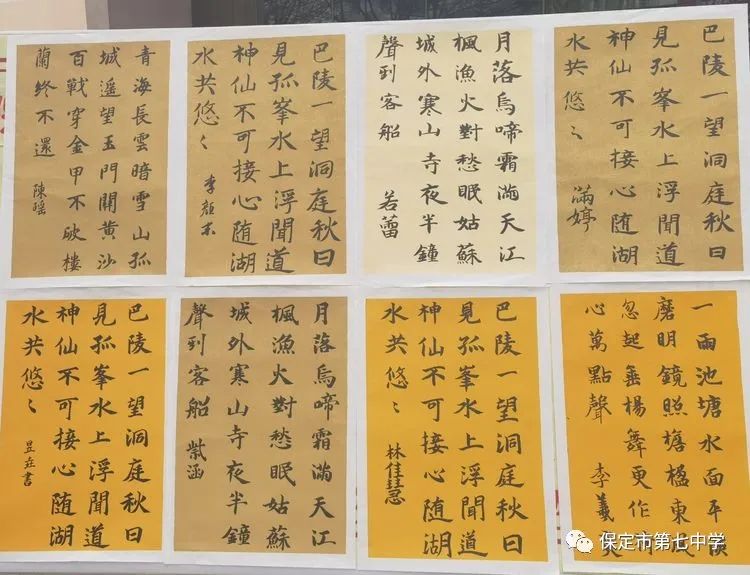 青海長雲暗雪山孤
城遥望玉門關黄沙
百戰穿金甲不破樓
蘭終不還 陳瑶
巴陵一望洞庭秋日
見孤峯水上浮聞道
神仙不可接心随湖
水共悠〻 李
月落烏啼霜滿天江
楓漁火對愁眠姑蘇
城外寒山寺夜半鐘
聲到客船 若蕾
巴陵一望洞庭秋日
見孤峯水上浮聞道
神仙不可接心随湖
水共悠〻 滿婷
巴陵一望洞庭秋日
見孤峯水上浮聞道
神仙不可接心随湖
水共悠〻 書
月落烏啼霜滿天江
楓漁火對愁眠姑蘇
城外寒山寺夜半鐘
聲到客船 紫涵
巴陵一望洞庭秋日
見孤峯水上浮聞道
神仙不可接心随湖
水共悠〻 林佳慧
一雨池塘水面平淡
磨明鏡照檐楹東
忽起垂楊舞更作
心萬點聲 李羲
保定市第七中学